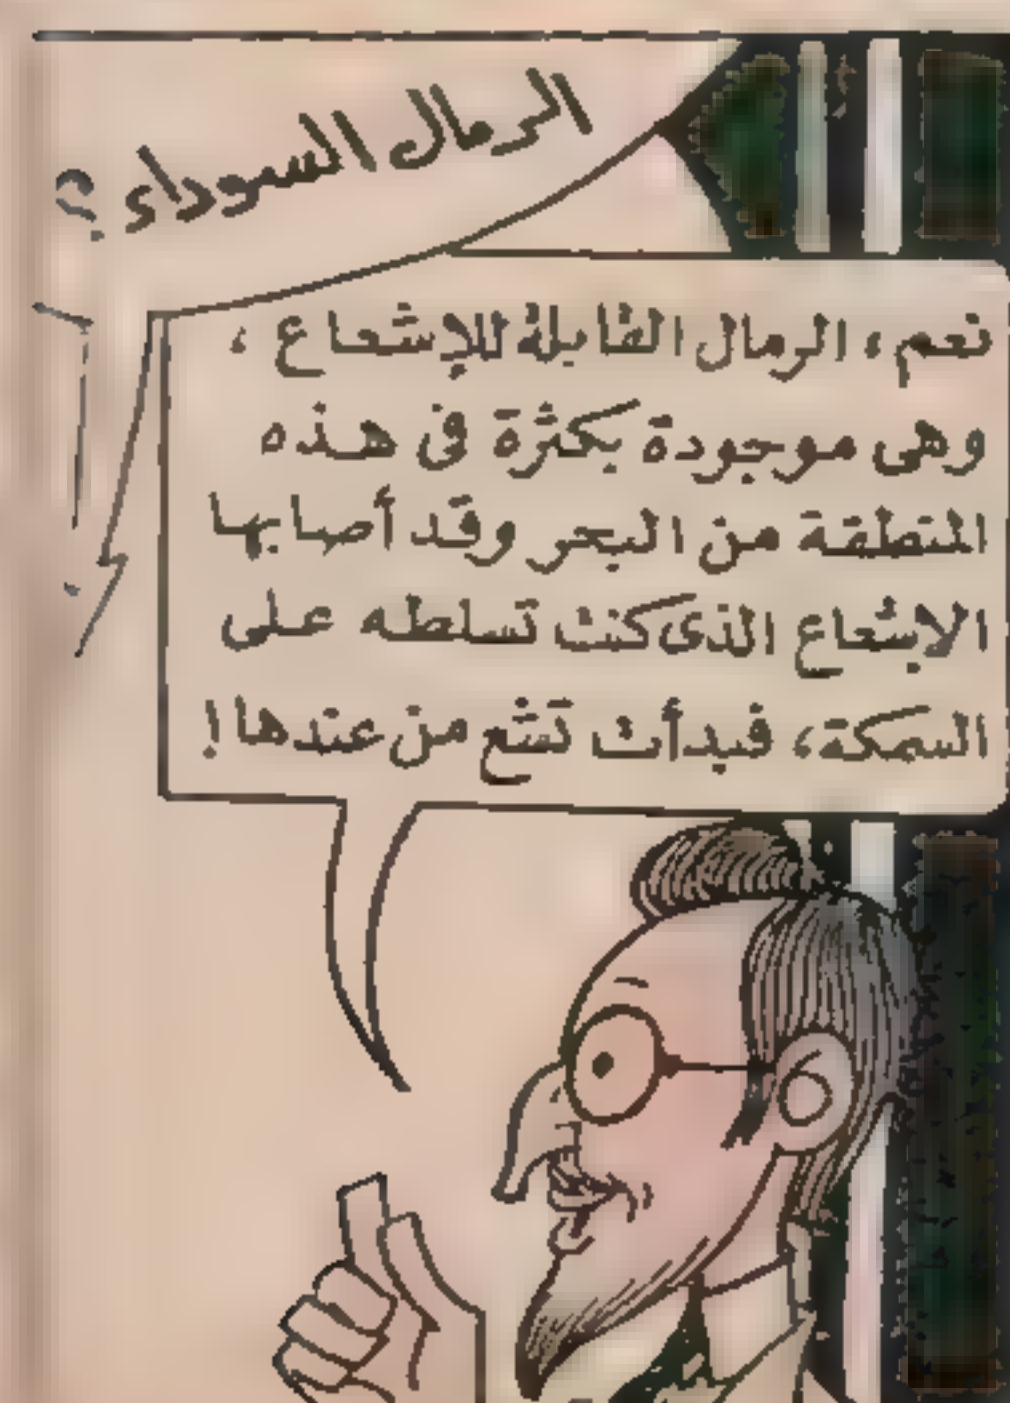 الرمال السوداء ؟
نعم، الرمال القابلة للإشعاع،
وهى موجودة بكثرة فى هذه
المنطقة من البحر وقد أصابها
الاشعاع الذى كنت تسلطه على
السمكة، فبدأت تشع من عندها!